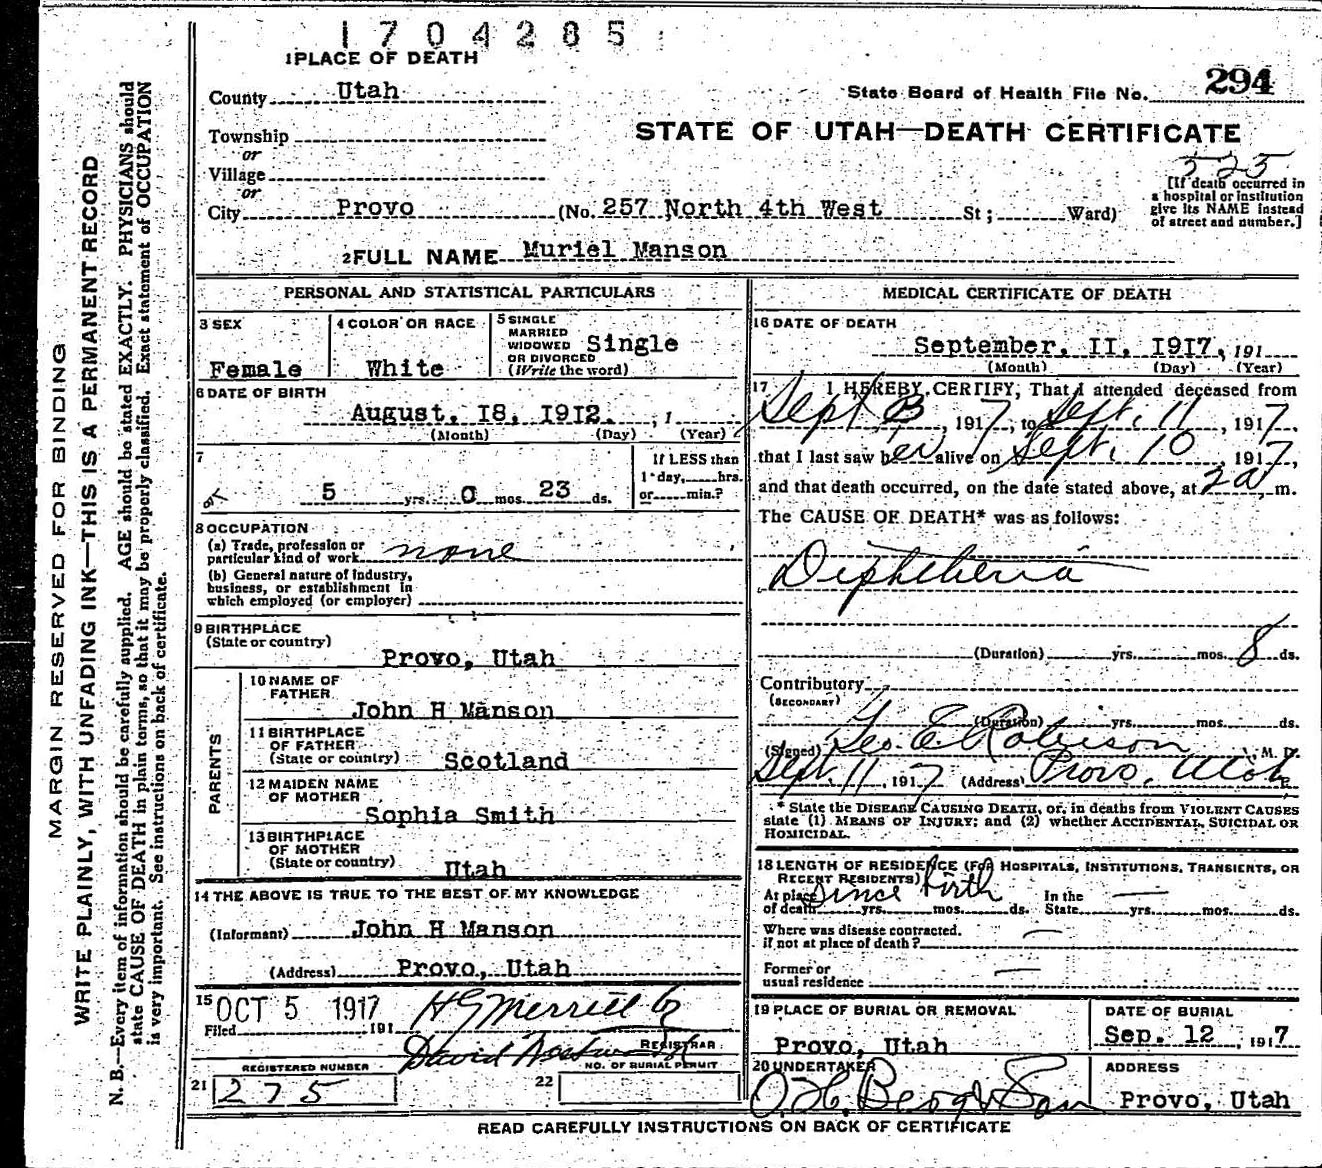 1704285
1 PLACE OF DEATH
County Utah
State Board of Health File No. 294
Township
or
STATE OF UTAH—DEATH CERTIFICATE
Village
or
525
City Provo (No. 257 North 4th West St; Ward)
[If death occurred in
a hospital or institution
give its NAME instead
of street and number.]
2 FULL NAME Muriel Manson
PERSONAL AND STATISTICAL PARTICULARS
3 SEX
Female
4 COLOR OR RACE
White
5 SINGLE
MARRIED
WIDOWED
OR DIVORCED
(Write the word)
Single
6 DATE OF BIRTH
August. I8, I9I2. , 1
(Month) (Day) (Year)
7
5 yrs. 0 mos. 23 ds.
If LESS than
1 day, hrs.
or min.?
8 OCCUPATION
(a) Trade, profession or
particular kind of work none
(b) General nature of industry,
business, or establishment in
which employed (or employer)
9 BIRTHPLACE
(State or country)
Provo, Utah
PARENTS
10 NAME OF
FATHER
John H Manson
11 BIRTHPLACE
OF FATHER
(State or country) Scotland
12 MAIDEN NAME
OF MOTHER
Sophia Smith
13 BIRTHPLACE
OF MOTHER
(State or country)
Utah
14 THE ABOVE IS TRUE TO THE BEST OF MY KNOWLEDGE
(Informant) John H Manson
(Address) Provo, Utah
15 OCT 5 1917
Filed 191
H G Merrill
David
REGISTRAR
REGISTERED NUMBER
21 275
NO. OF BURIAL PERMIT
22
MEDICAL CERTIFICATE OF DEATH
16 DATE OF DEATH
September. II, I9I7, 191
(Month) (Day) (Year)
17 I HEREBY CERTIFY, That I attended deceased from
Sept 3, 1917, to Sept. 11, 1917,
that I last saw her alive on Sept. 10 1917,
and that death occurred, on the date stated above, at 2 a m.
The CAUSE OF DEATH* was as follows:
Diphtheria
(Duration) yrs. mos. 8 ds.
Contributory
(SECONDARY)
(Duration) yrs. mos. ds.
(Signed) Geo. E. Robison M. D.
Sept. 11, 1917 (Address) Provo, Utah
* State the DISEASE CAUSING DEATH, or, in deaths from VIOLENT CAUSES
state (1) MEANS OF INJURY; and (2) whether ACCIDENTAL, SUICIDAL OR
HOMICIDAL.
18 LENGTH OF RESIDENCE (FOR HOSPITALS, INSTITUTIONS, TRANSIENTS, OR
RECENT RESIDENTS) since birth
At place In the
of death yrs. mos. ds. State yrs. mos. ds.
Where was disease contracted.
if not at place of death?
Former or
usual residence
19 PLACE OF BURIAL OR REMOVAL
Provo, Utah
DATE OF BURIAL
Sep. 12, 1917
20 UNDERTAKER
O. H. Berg & Son
ADDRESS
Provo, Utah
READ CAREFULLY INSTRUCTIONS ON BACK OF CERTIFICATE
MARGIN RESERVED FOR BINDING
WRITE PLAINLY, WITH UNFADING INK—THIS IS A PERMANENT RECORD
N. B.—Every item of information should be carefully supplied. AGE should be stated EXACTLY. PHYSICIANS should
state CAUSE OF DEATH in plain terms, so that it may be properly classified. Exact statement of OCCUPATION
is very important. See instructions on back of certificate.